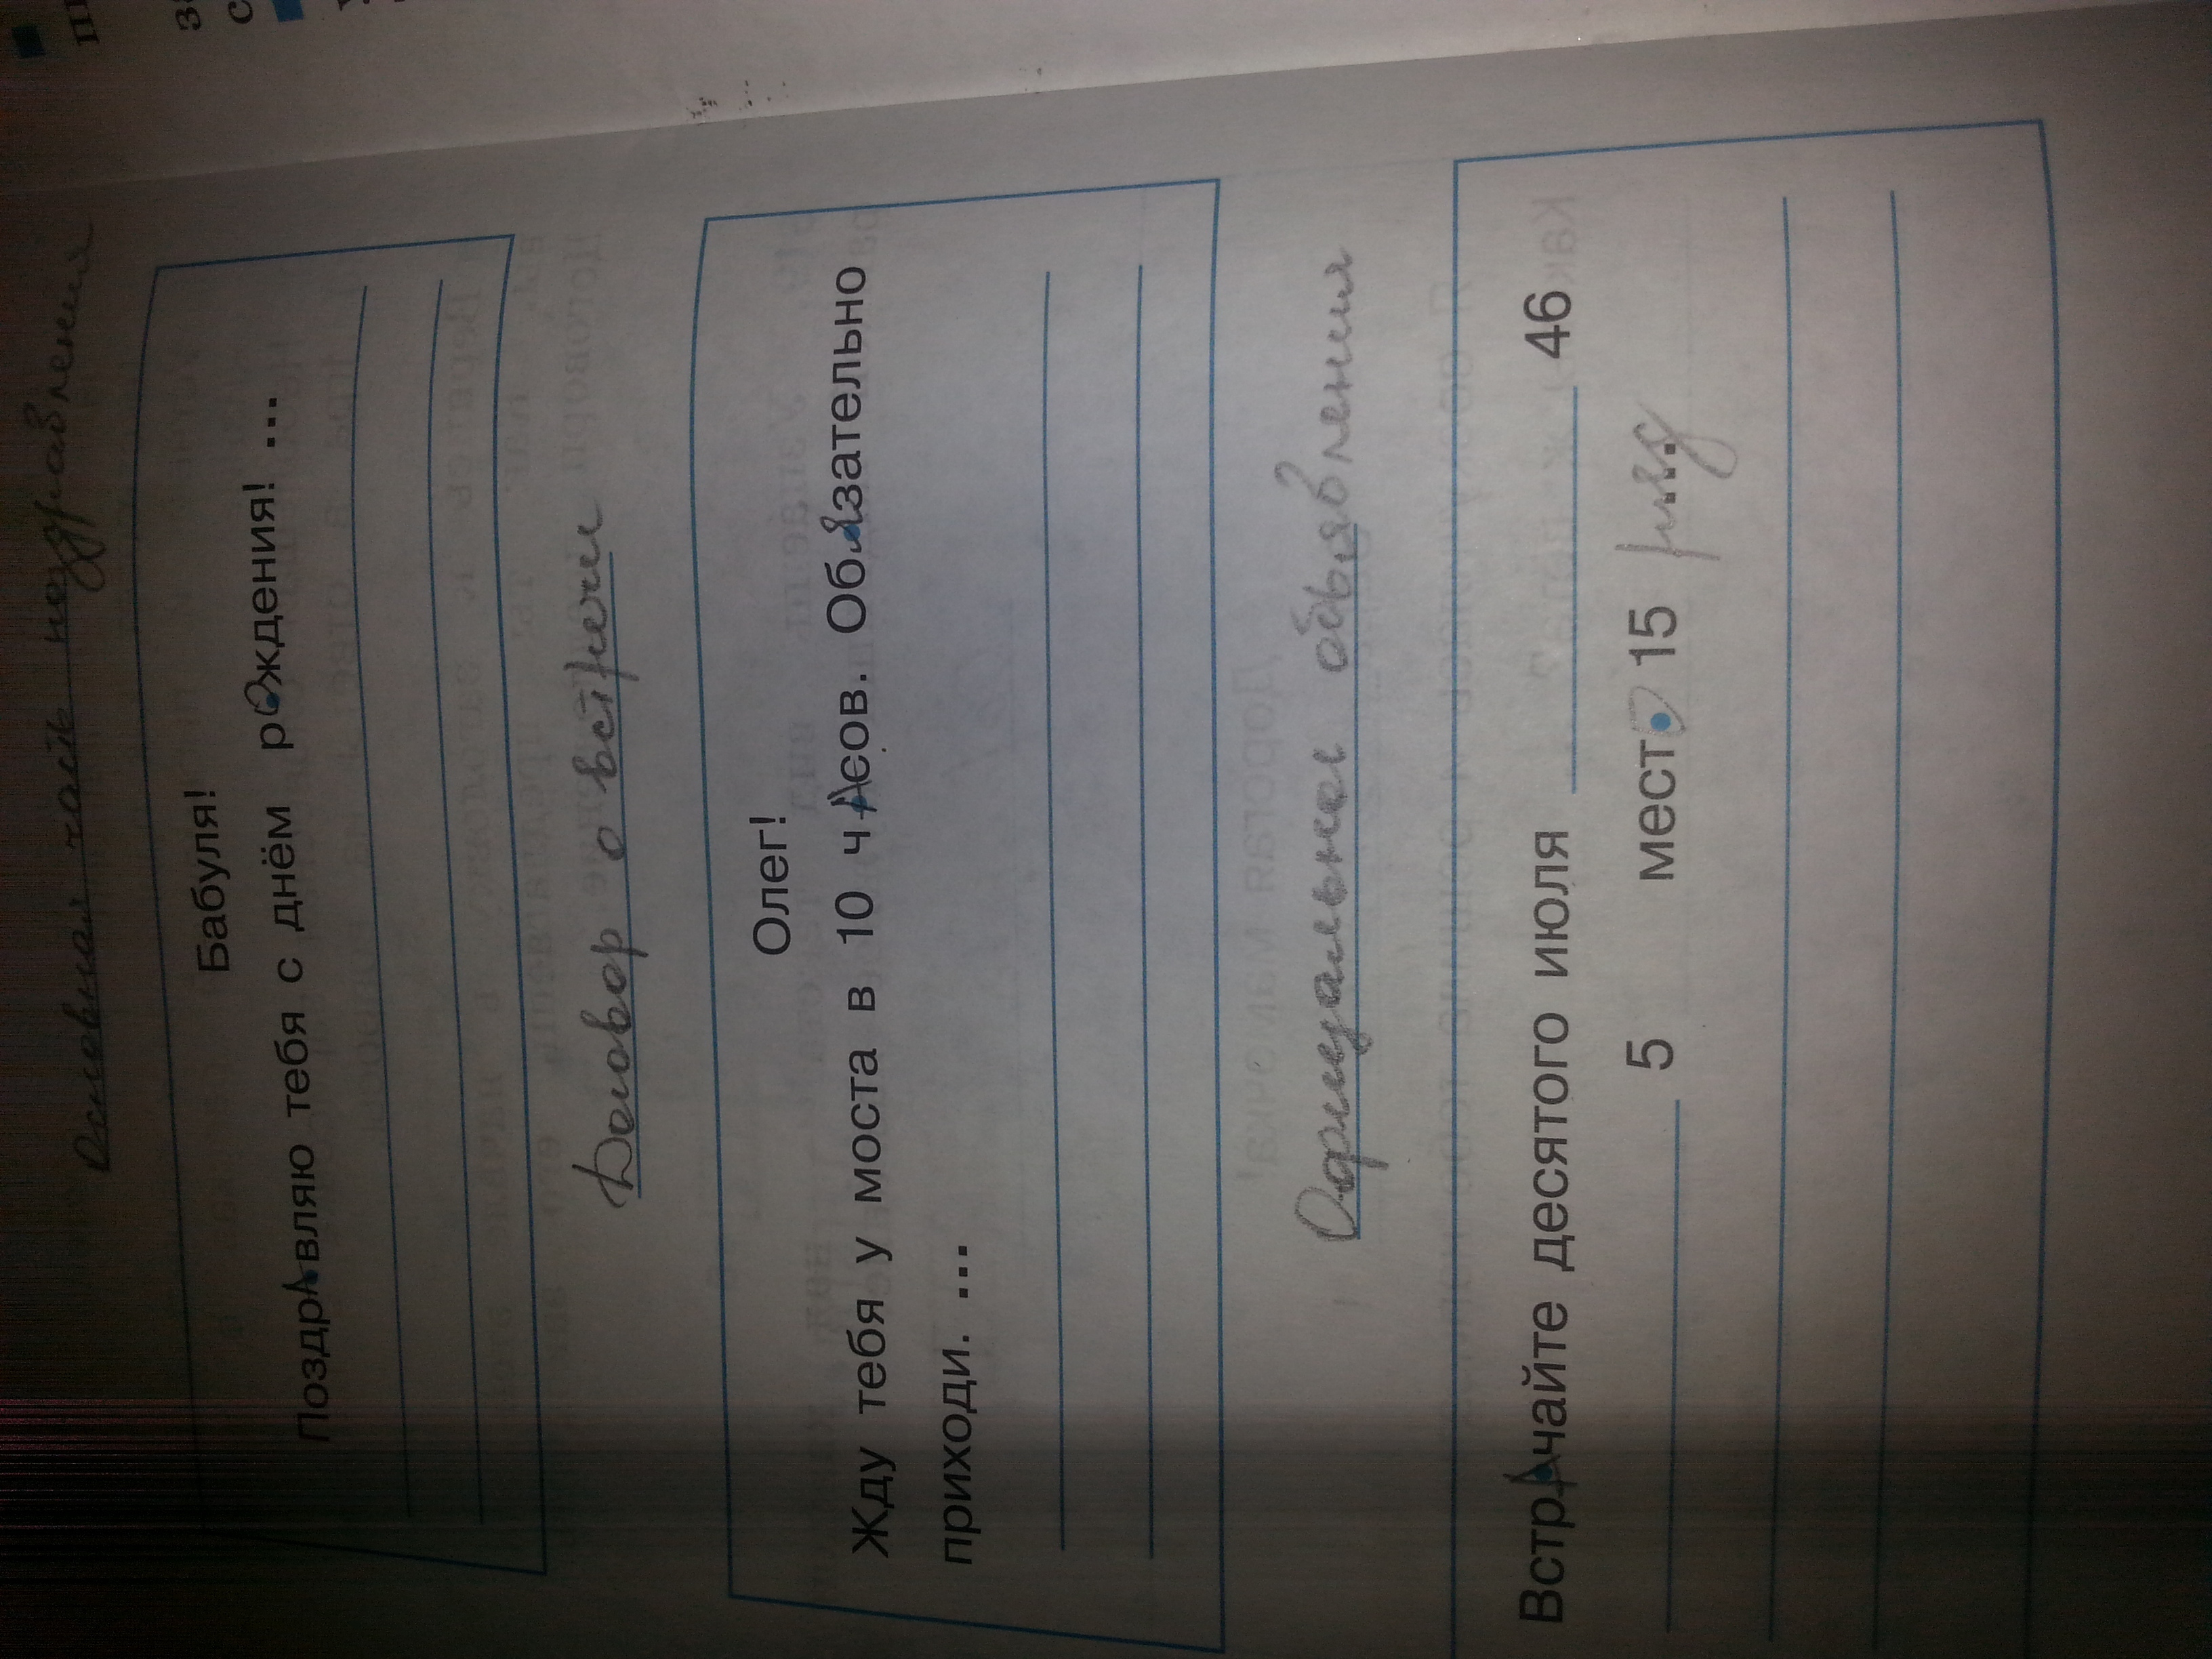 Основная часть поздравления
Бабуля!
ПоздрАвляю тебя с днём рОждения! ...
Договор о встречи
Олег!
Жду тебя у моста в 10 чАсов. Обязательно
приходи. ...
Официальное объявления
ВстрАчайте десятого июля 46
5 местО 15 ряд